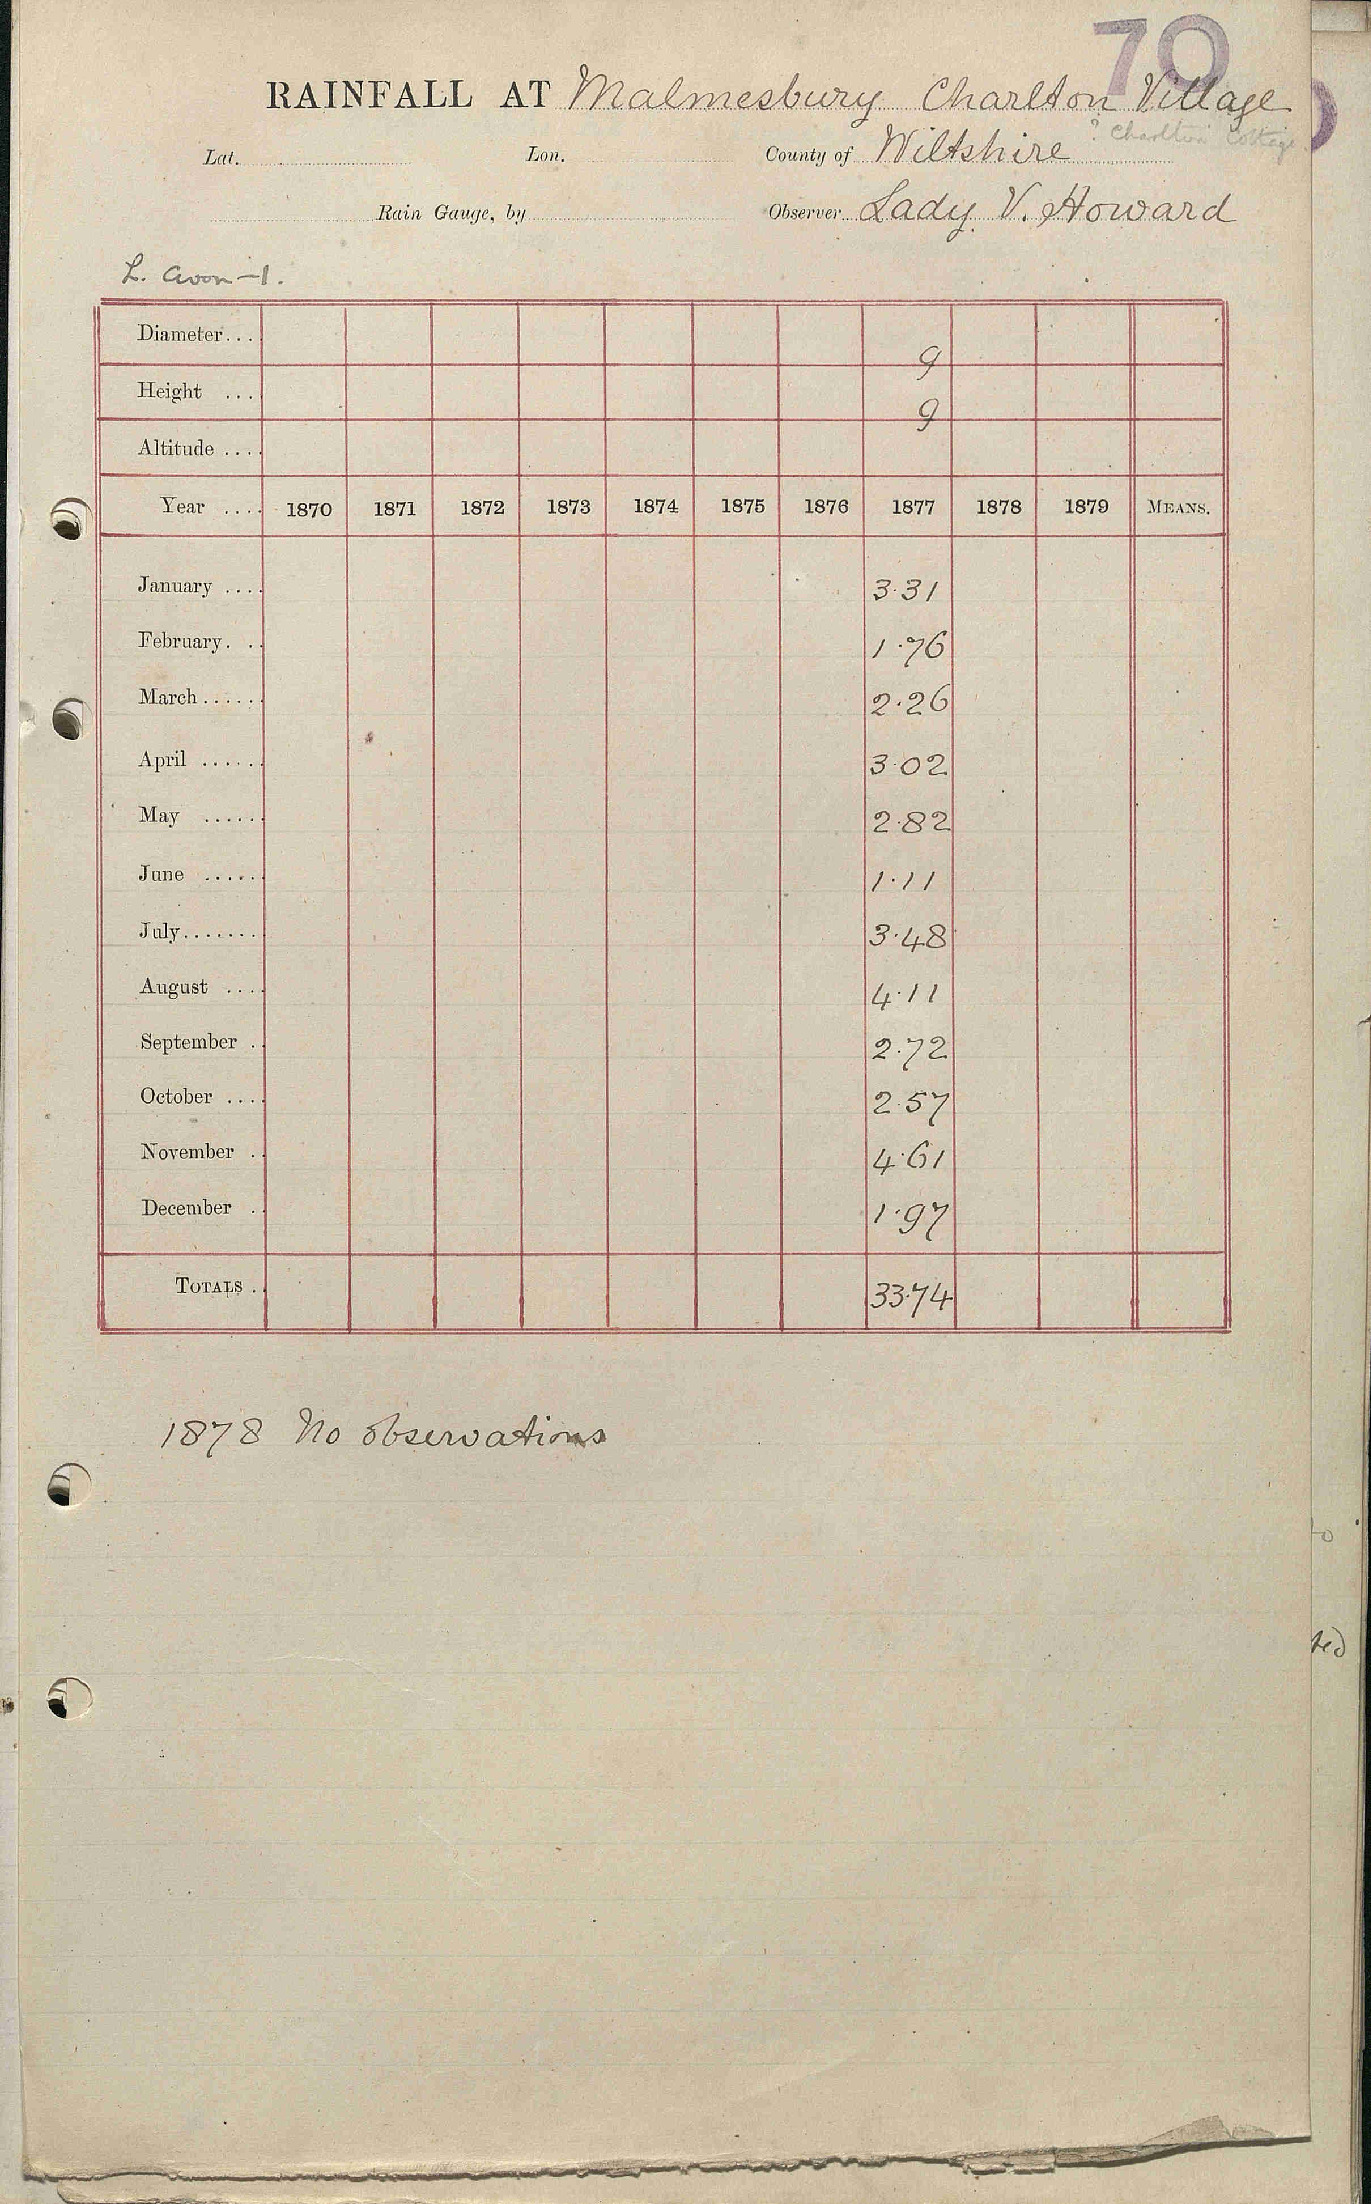 70
RAINFALL AT Malmesbury Charlton Village
? Charlton Cottage
Lat. Lon. County of Wiltshire
Rain Gauge, by Observer Lady V. Howard
L. Avon-1.
Diameter...
9
Height ...
9
Altitude ....
Year .... 1870 1871 1872 1873 1874 1875 1876 1877 1878 1879 MEANS.
January .... 3.31
February. .. 1.76
March...... 2.26
April ...... 3.02
May ...... 2.82
June ...... 1.11
July....... 3.48
August .... 4.11
September . 2.72
October .... 2.57
November .. 4.61
December .. 1.97
TOTALS .. 33.74
1878 No observations